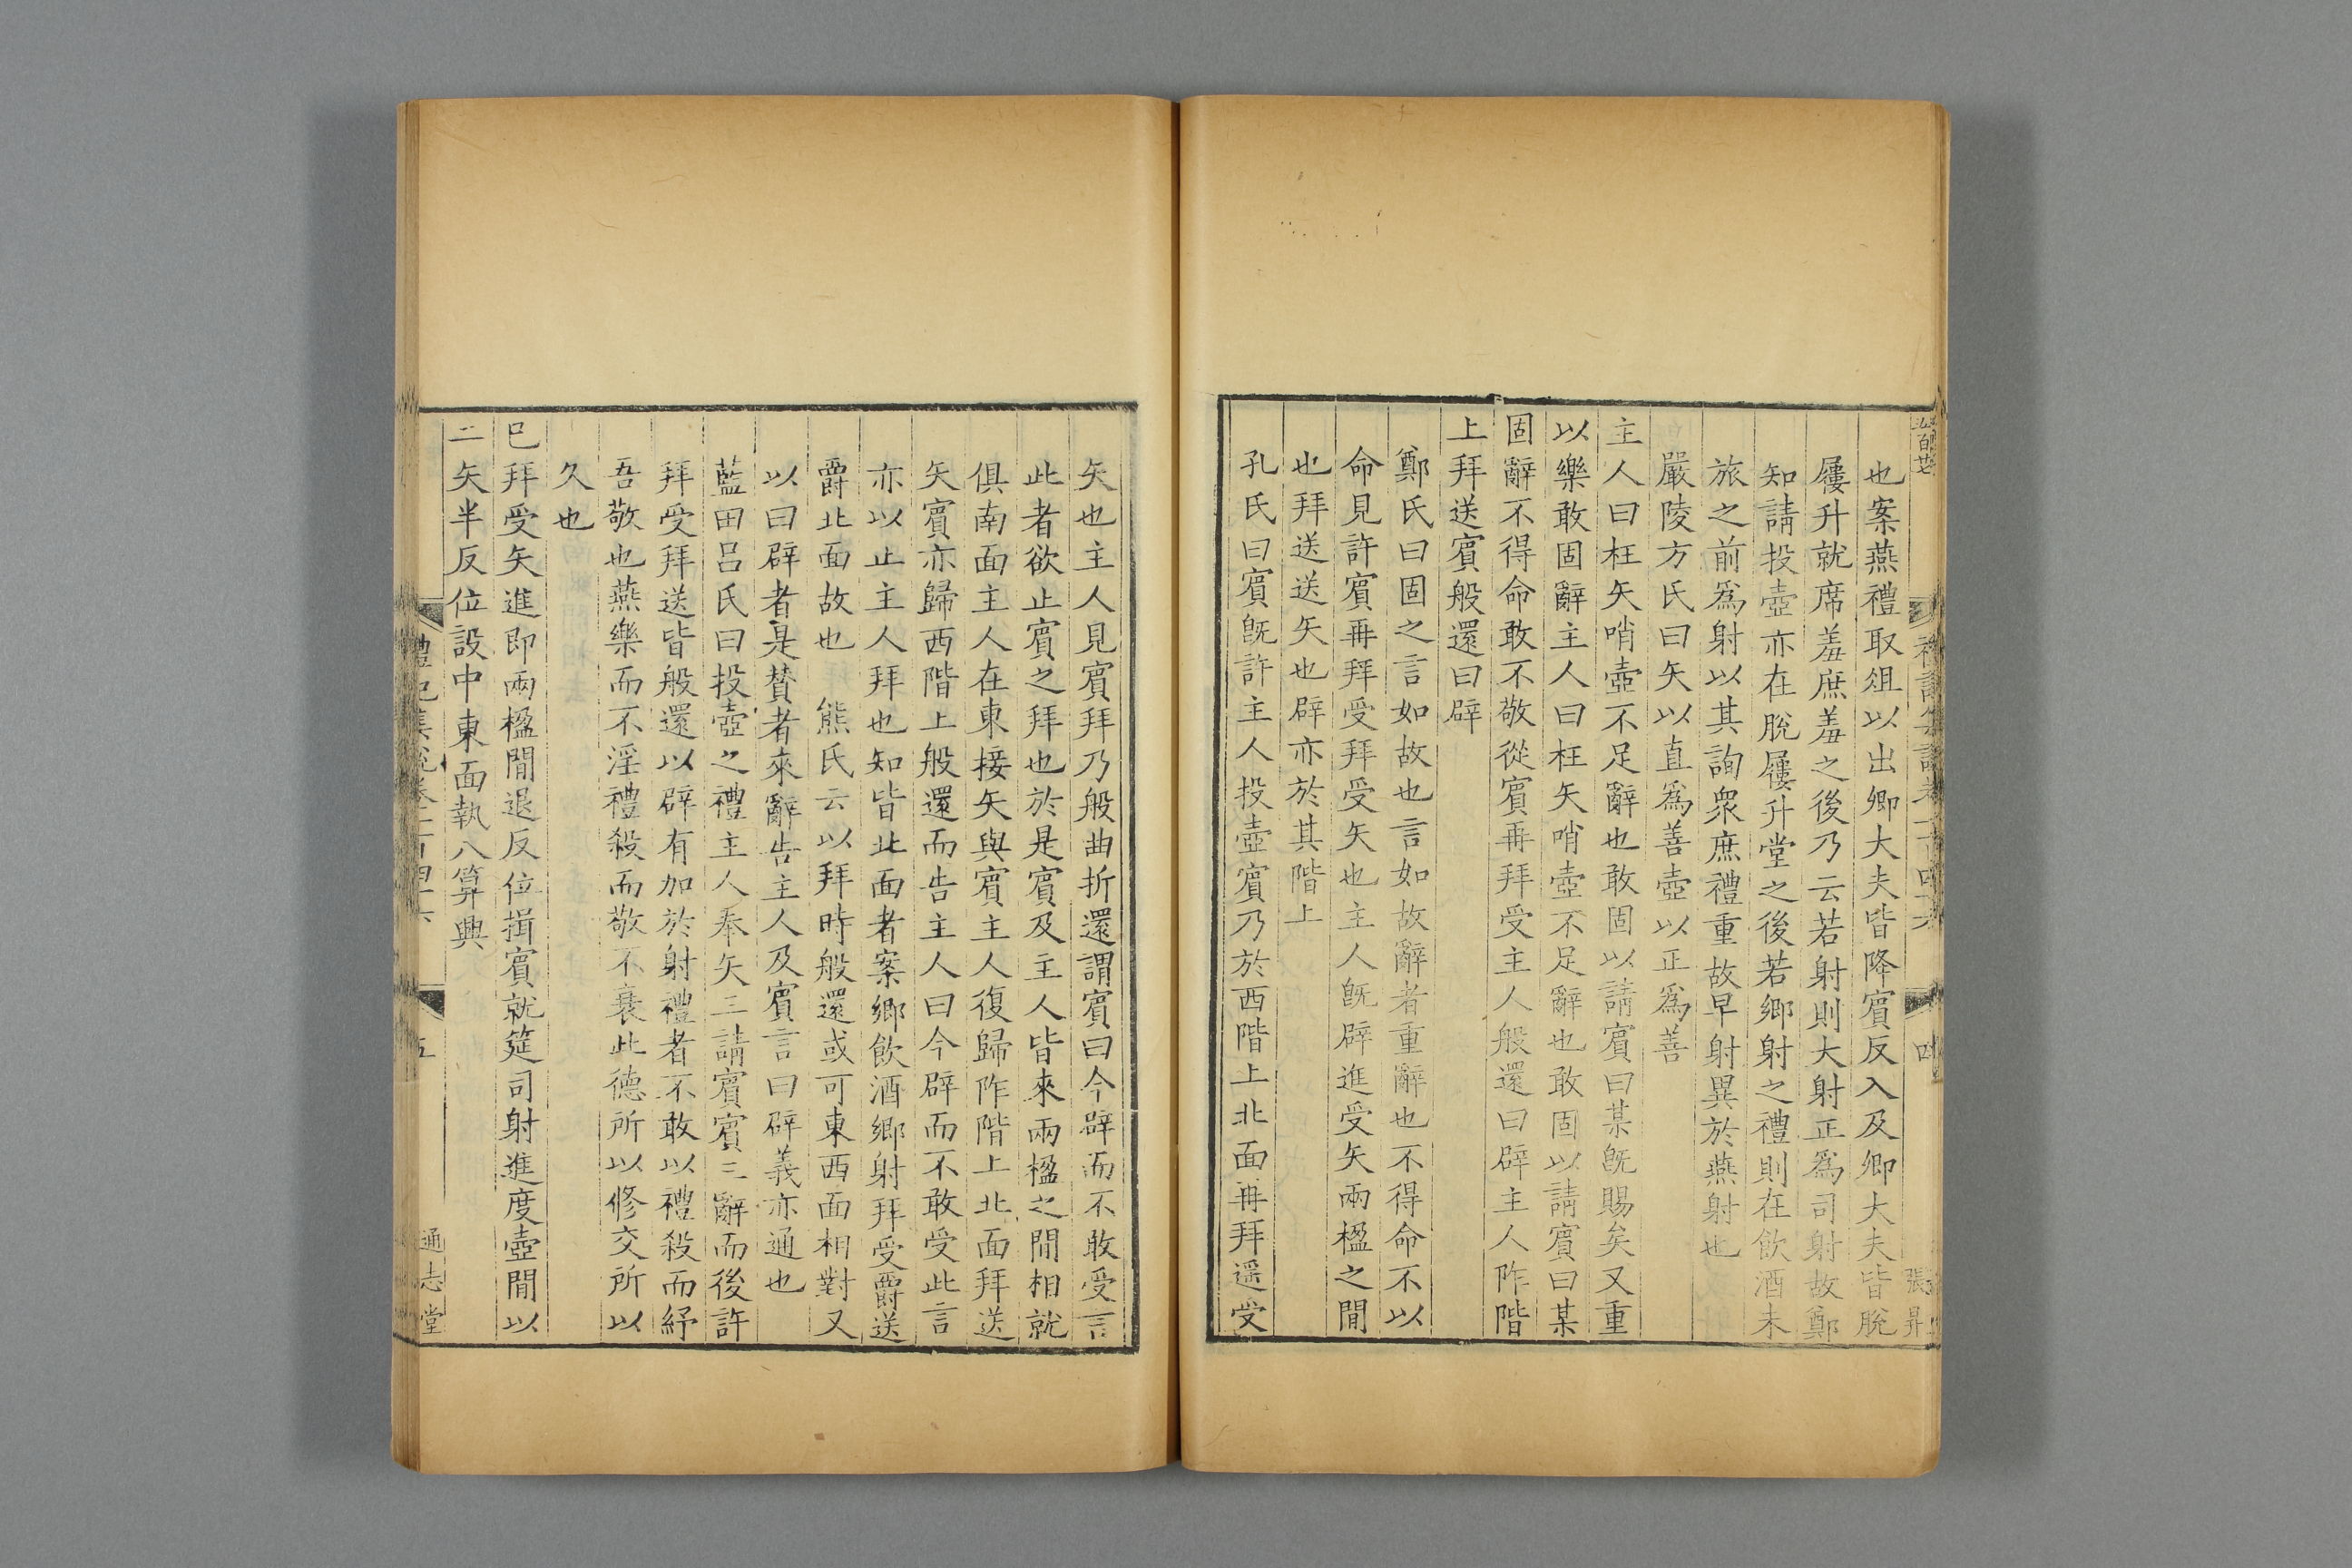 也案燕禮取俎以出卿大夫皆降賓反入及卿大夫皆脫
屨升就席羞庶羞之後乃云若射則大射正爲司射故鄭
知請投壺亦在脫屨升堂之後若鄉射之禮則在飲酒未
旅之前爲射以其詢衆庶禮重故早射異於燕射也
嚴陵方氏曰矢以直爲善壺以正爲善
主人曰枉矢哨壺不足辭也敢固以請賓曰某旣賜矣又重
以樂敢固辭主人曰枉矢哨壺不足辭也敢固以請賓曰某
固辭不得命敢不敬從賓再拜受主人般還曰辟主人阼階
上拜送賓般還曰辟
鄭氏曰固之言如故也言如故辭者重辭也不得命不以
命見許賓再拜受拜受矢也主人旣辟進受矢兩楹之閒
也拜送送矢也辟亦於其階上
孔氏曰賓旣許主人投壺賓乃於西階上北面再拜遥受
矢也主人見賓拜乃般曲折還謂賓曰今辟而不敢受言
此者欲止賓之拜也於是賓及主人皆來兩楹之閒相就
俱南面主人在東接矢與賓主人復歸阼階上北面拜送
矢賓亦歸西階上般還而告主人曰今辟而不敢受此言
亦以止主人拜也知皆北面者案鄉飲酒鄉射拜受爵送
爵北面故也 熊氏云以拜時般還或可東西面相對又
以曰辟者是贊者來辭告主人及賓言曰辟義亦通也
藍田呂氏曰投壺之禮主人奉矢三請賓賓三辭而後許
拜受拜送皆般還以辟有加於射禮者不敢以禮殺而紓
吾敬也燕樂而不淫禮殺而敬不衰此德所以修交所以
久也
已拜受矢進即兩楹閒退反位揖賓就筵司射進度壺閒以
二矢半反位設中東面執八算興
禮記集說卷一百四十六
五
通志堂